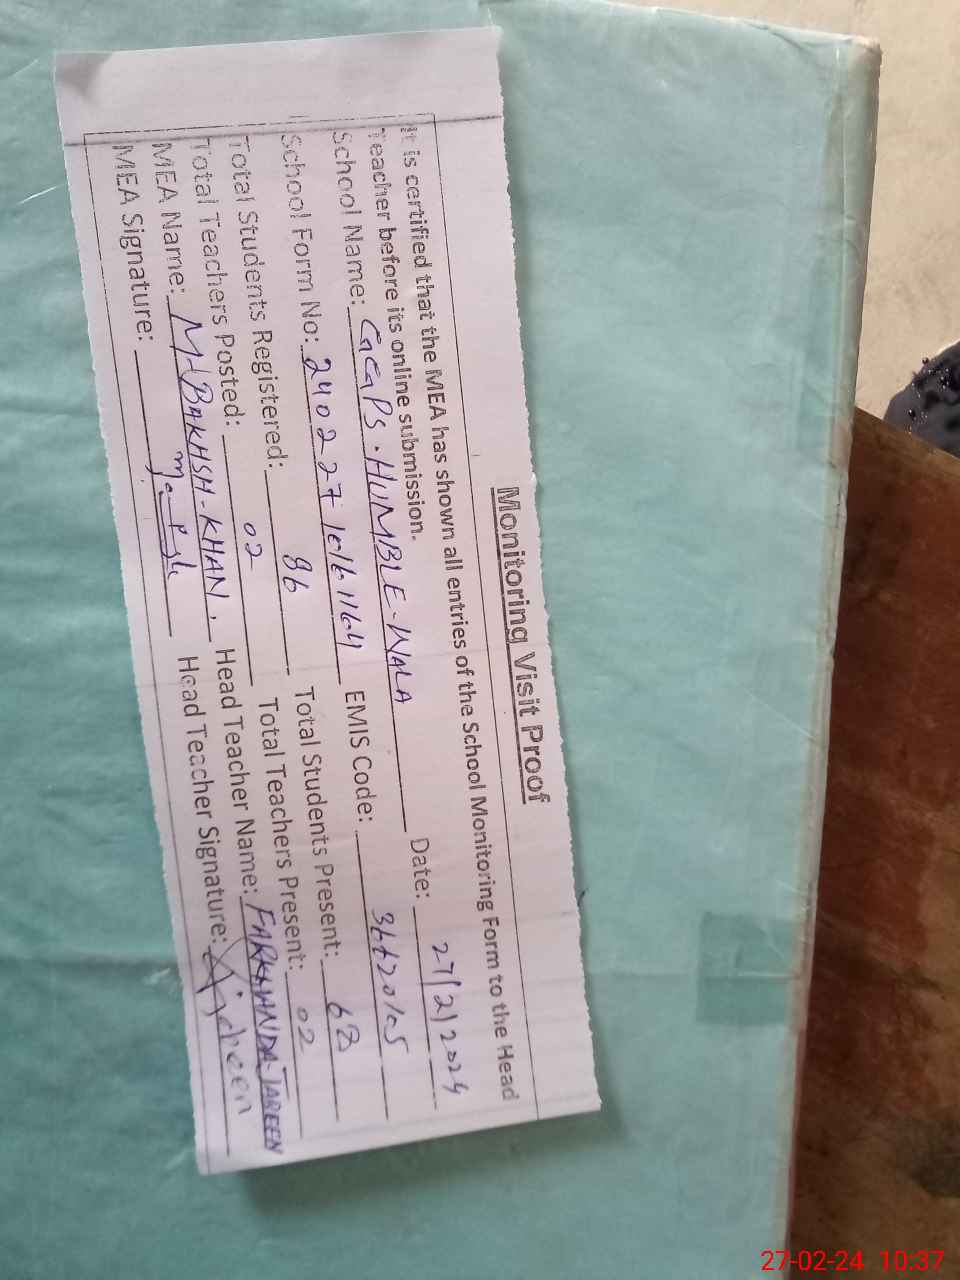 Monitoring Visit Proof
It is certified that the MEA has shown all entries of the School Monitoring Form to the Head
Teacher before its online submission.
School Name: GGPS. HUMBLE-WALA Date: 27/2/2024
School Form No: EMIS Code:
Total Students Registered: 86 Total Students Present: 68
Total Teachers Posted: 02 Total Teachers Present: 02
MEA Name: M-BAKHSH-KHAN. Head Teacher Name: FARKHANDA-JABEEN
MEA Signature: Head Teacher Signature:
27-02-24 10:37